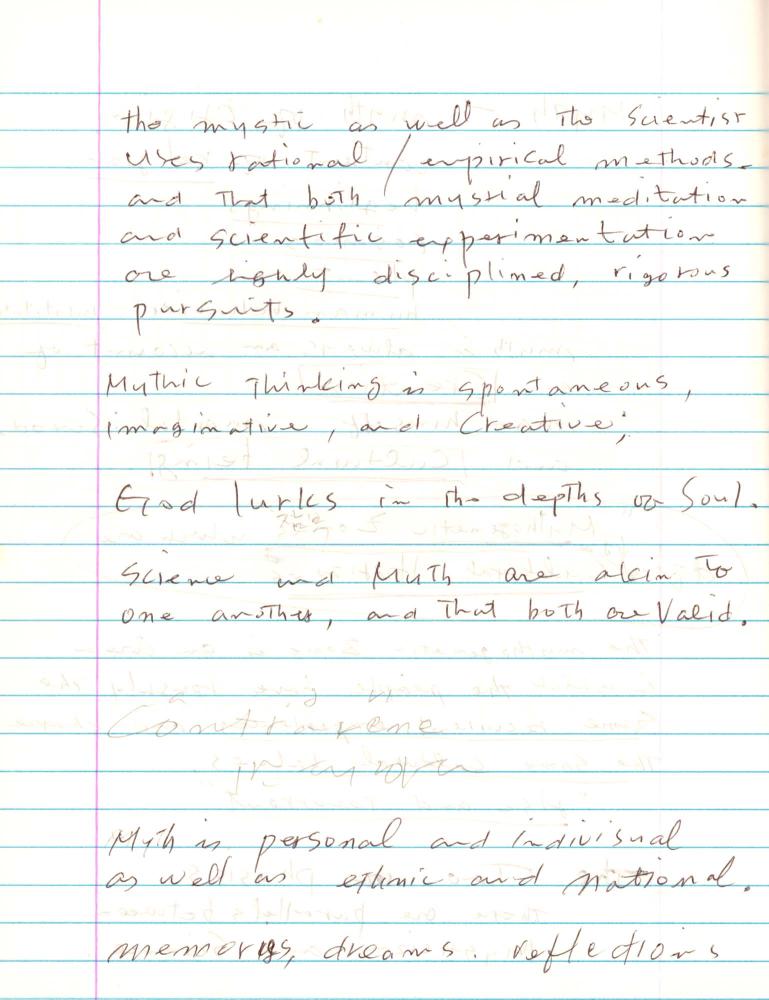 the mystic as well as the Scientist
uses rational / empirical methods.
and That both mystial meditation
and scientific experimentation
are highly disciplimed, rigorous
pursuits.
Mythic Thinking is spontaneous,
imaginative, and Creative;
God lurks in the depths of Soul.
Science and Myth are akin To
one another, and That both are Valid.
Myth is personal and indivisual
as well as ethnic and national.
memories, dreams. reflections